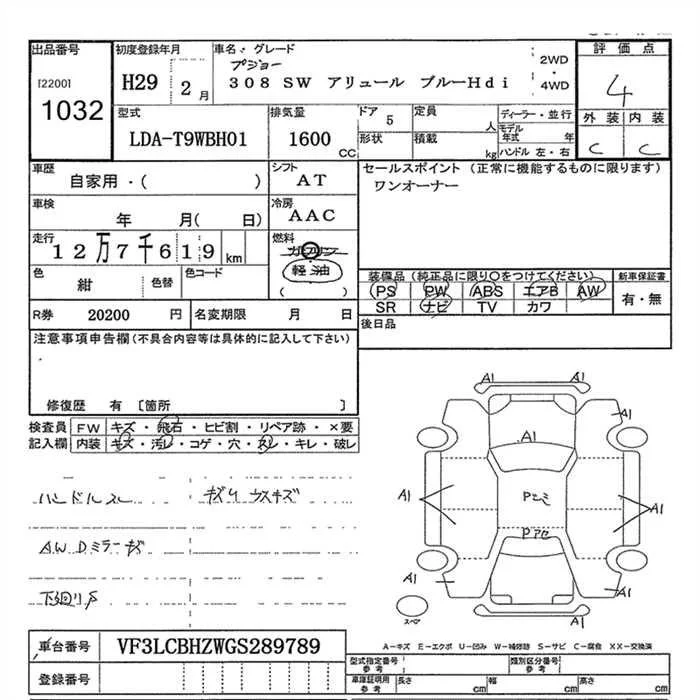 出品番号
[2200]
1032
初度登録年月
H29 2月
車名・グレード
プジョー
308 SW アリュール ブルーHdi
2WD
・
4WD
評価点
4
外装 内装
C C
型式
LDA-T9WBH01
排気量
1600 CC
ドア 5
形状
定員 人
積載 kg
ディーラー・並行
モデル年式 年
ハンドル 左・右
車歴
自家用・( )
シフト
AT
セールスポイント (正常に機能するものに限ります)
ワンオーナー
車検
年 月( 日)
冷房
AAC
走行
12万7千619 km
燃料
ガソリン
軽油
( )
色
紺
色替
色コード
装備品 (純正品に限り○をつけてください)
PS PW ABS エアB AW
SR ナビ TV カワ
新車保証書
有・無
R券 20200 円
名変期限 月 日
後日品
注意事項申告欄(不具合内容等は具体的に記入して下さい)
修復歴 有 [箇所 ]
検査員
記入欄
FW キズ・飛石・ヒビ割・リペア跡・×要
内装 キズ・汚レ・コゲ・穴・スレ・キレ・破レ
ハンドルスレ
キズ
A.W Dミラーキズ
下廻りサ
A1 A1
A1
A1
A1
A1
A1
A1
スペア
車台番号 VF3LCBHZWGS289789
登録番号
A-キズ E-エクボ U-凹み W-補修跡 S-サビ C-腐食 XX-交換済
型式指定番号
参考
類別区分番号
参考
車庫証明用
参考
長さ cm
幅 cm
高さ cm